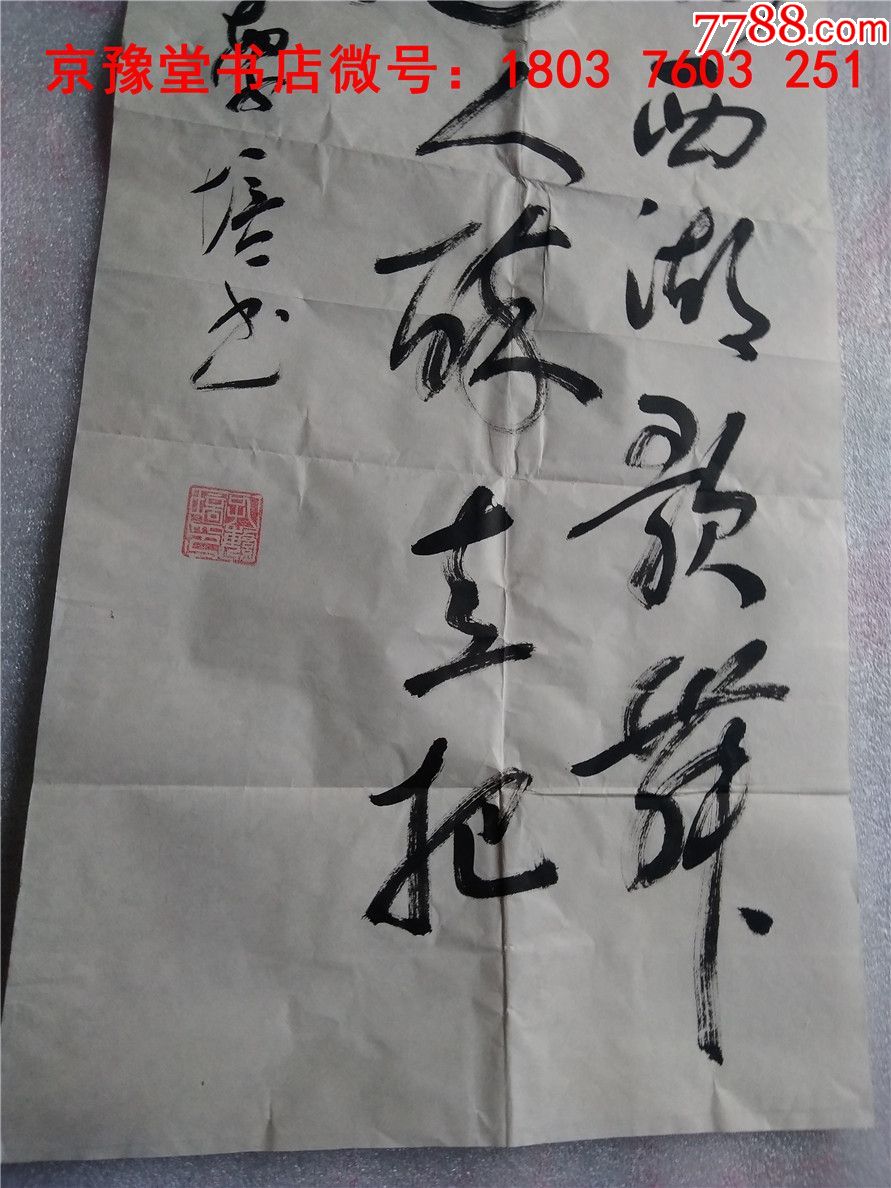 7788.com
京豫堂书店微号：1803 7603 251
西湖歌舞
人醉直把
书